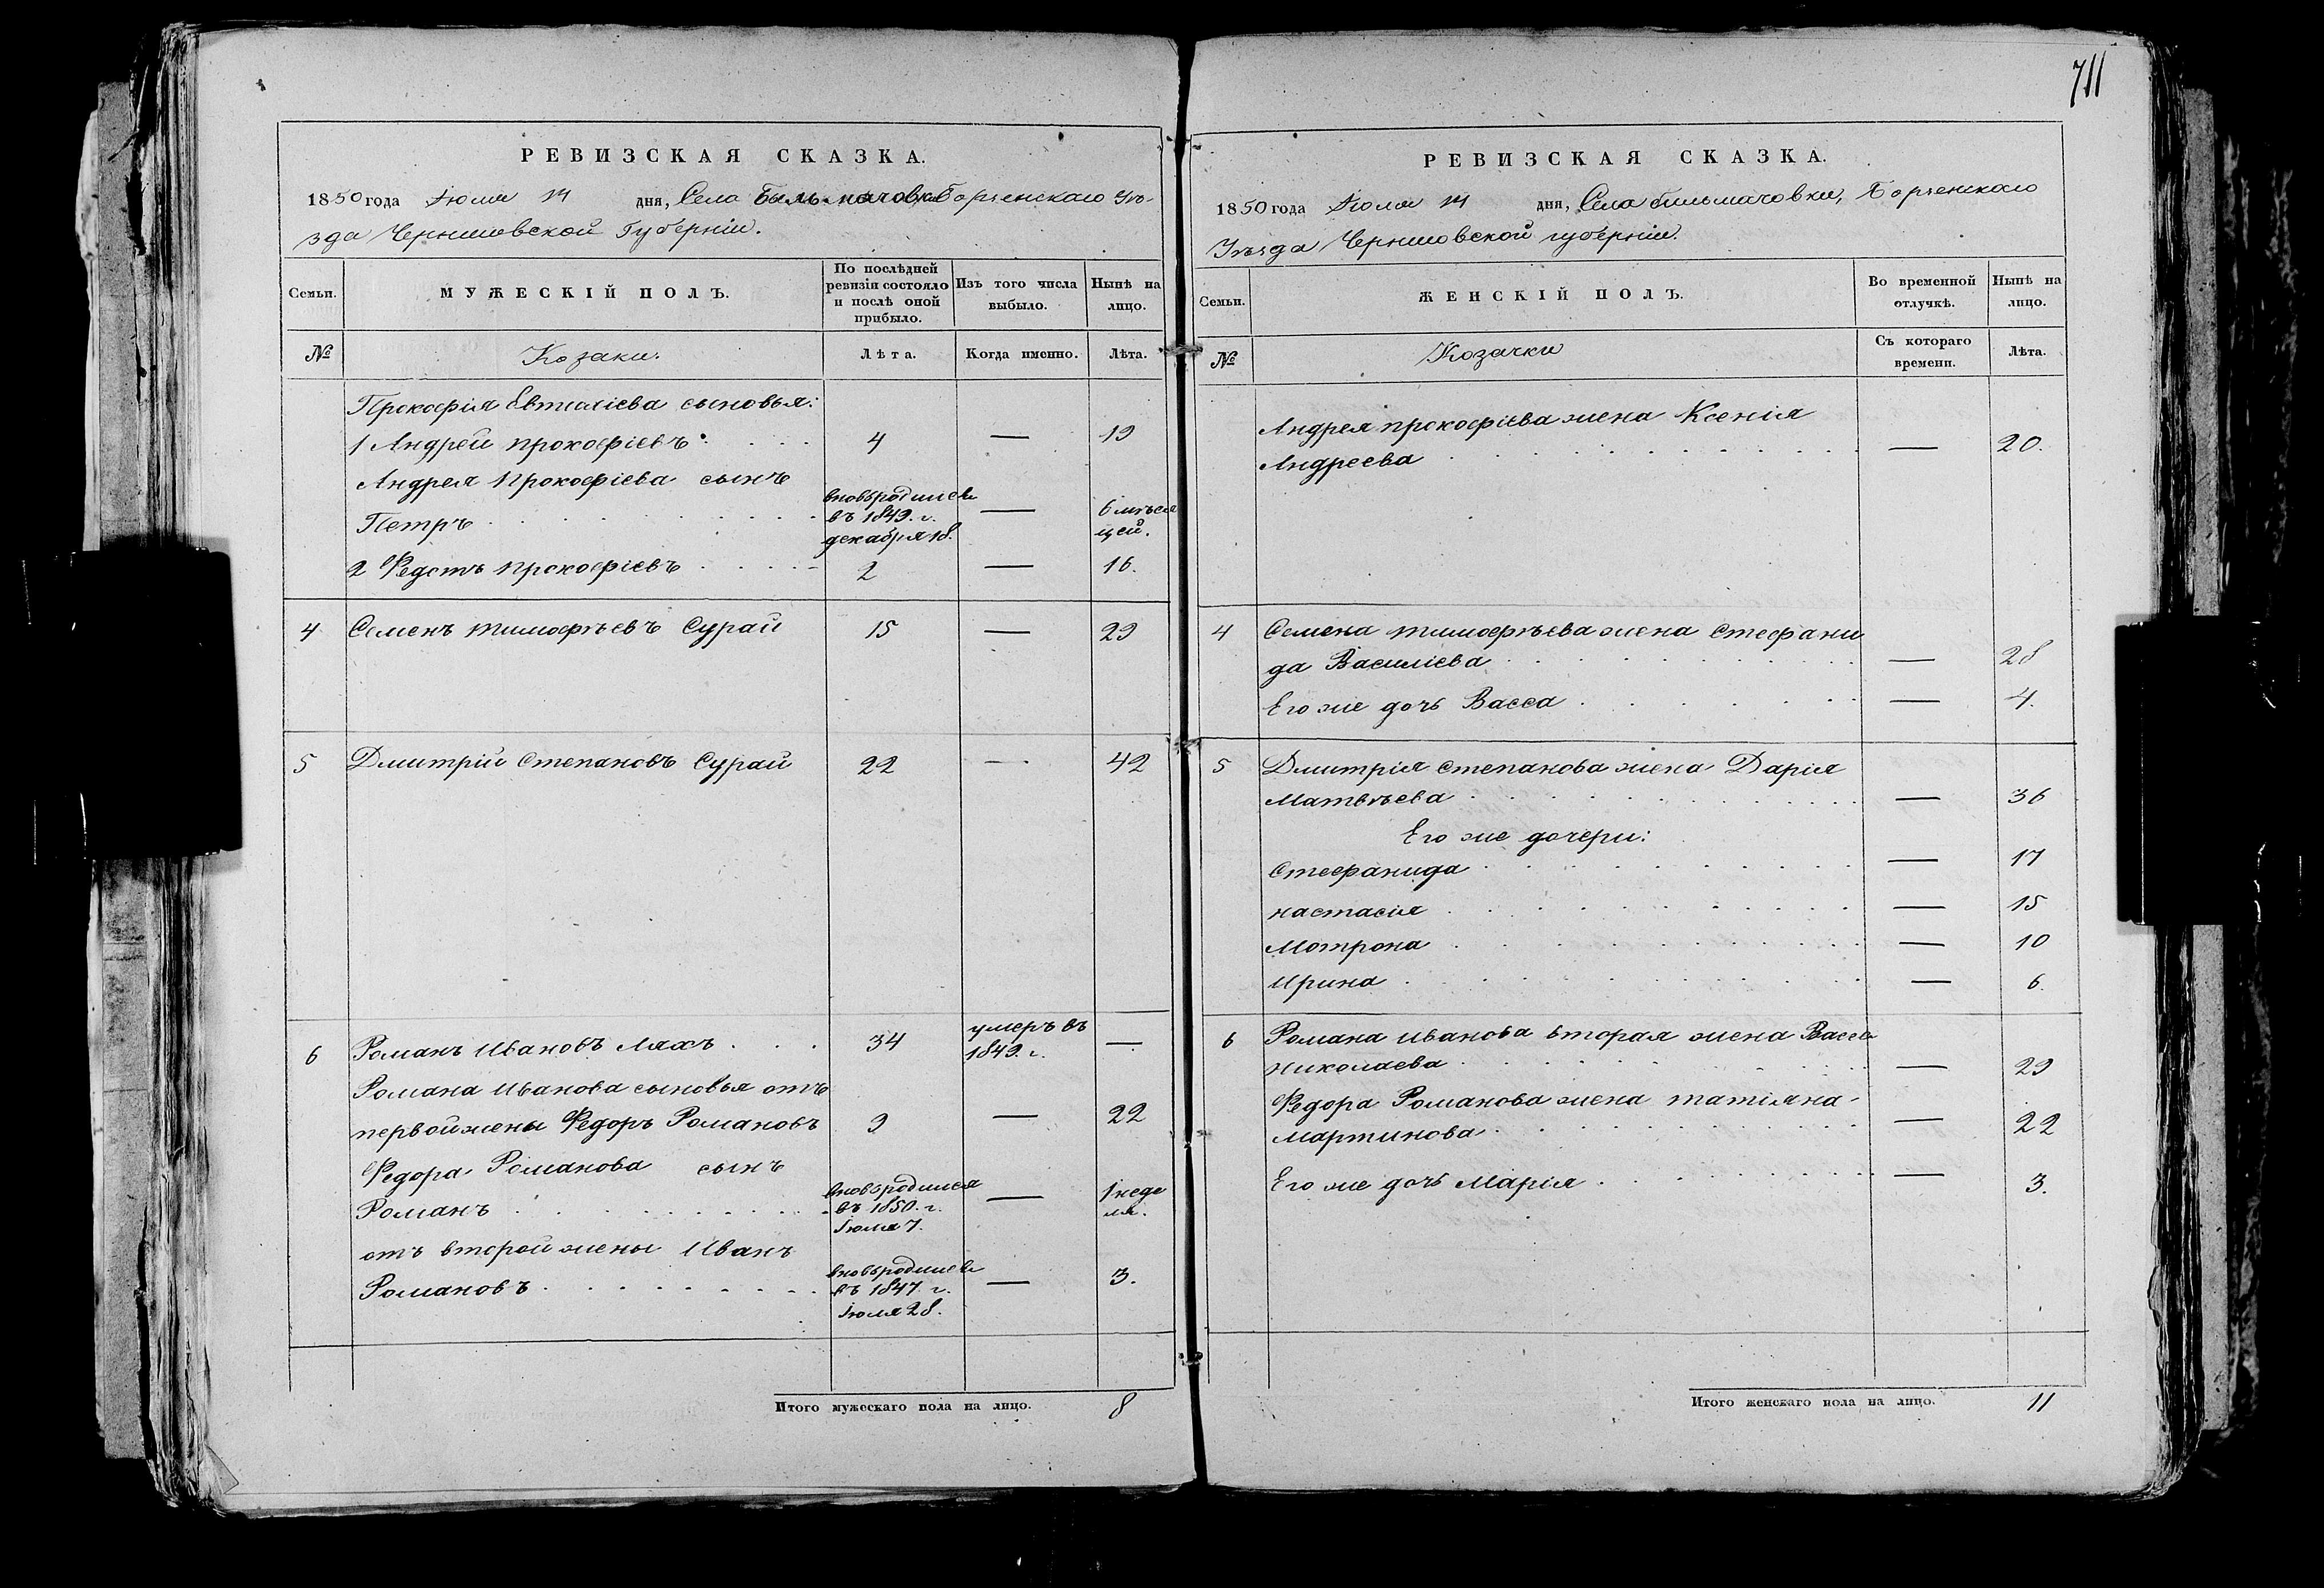 711
РЕВИЗСКАЯ СКАЗКА.
1850 года Іюля 14 дня, Села Бильмачовки Борзенскаго Уѣ-
зда Черниговской Губерніи.
Семьи. МУЖЕСКІЙ ПОЛЪ. По послѣдней ревизіи состояло и послѣ оной прибыло. Изъ того числа выбыло. Нынѣ на лицо.
№ Козаки. Лѣта. Когда именно. Лѣта.
Прокофія Евтиѣіева сыновья:
1 Андрей Прокофіевъ 4 — 19
Андрея Прокофіева сынъ
Петръ вновьродился въ 1849. г. декабря 18. — 6 мѣся цей.
2 Федотъ Прокофіевъ 2 — 16.
4 Семенъ Тимофѣевъ Сурай 15 — 29
5 Дмитрій Степановъ Сурай 22 — 42
6 Романъ Ивановъ Ляхъ 34 умеръ въ 1849. г. —
Романа Иванова сыновья отъ
первой жены Федоръ Романовъ 9 — 22
Федора Романова сынъ
Романъ вновьродился въ 1850. г. Іюля 7. — 1 неде ля.
отъ второй жены Иванъ
Романовъ вновьродился въ 1847. г. Іюля 28. — 3.
Итого мужескаго пола на лицо. 8
РЕВИЗСКАЯ СКАЗКА.
1850 года Іюля 14 дня, Села Бильмачовки, Борзенскаго
Уѣзда Черниговской губерніи.
Семьи. ЖЕНСКІЙ ПОЛЪ. Во временной отлучкѣ. Нынѣ на лицо.
№ Козачки Съ котораго времени. Лѣта.
Андрея Прокофіева жена Ксенія
Андреева — 20.
4 Семена Тимофѣева жена Стефани
да Василіева — 28
Его же дочь Васса — 4.
5 Дмитрія Степанова жена Дарія
Матвѣева — 36
Его же дочери:
Стефанида — 17
Настасія — 15
Мотрона — 10
Ирина — 6.
6 Романа Иванова вторая жена Васса
Николаева — 29
Федора Романова жена Татіяна
Мартинова — 22
Его же дочь Марія — 3.
Итого женскаго пола на лицо. 11